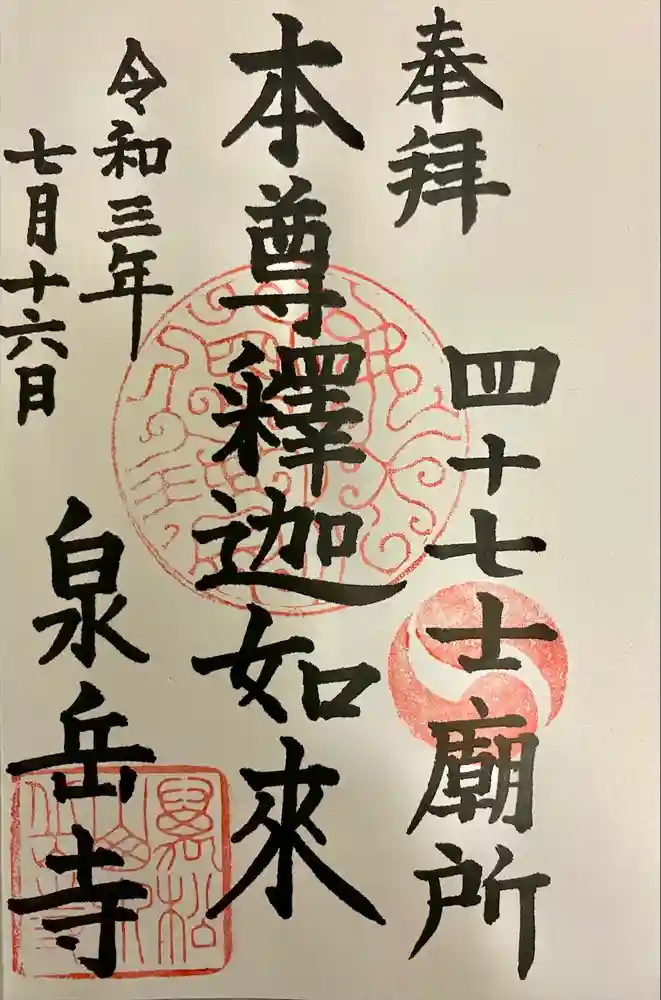 奉拜
四十七士廟所
本尊釋迦如來
令和三年
七月十六日
泉岳寺
萬松